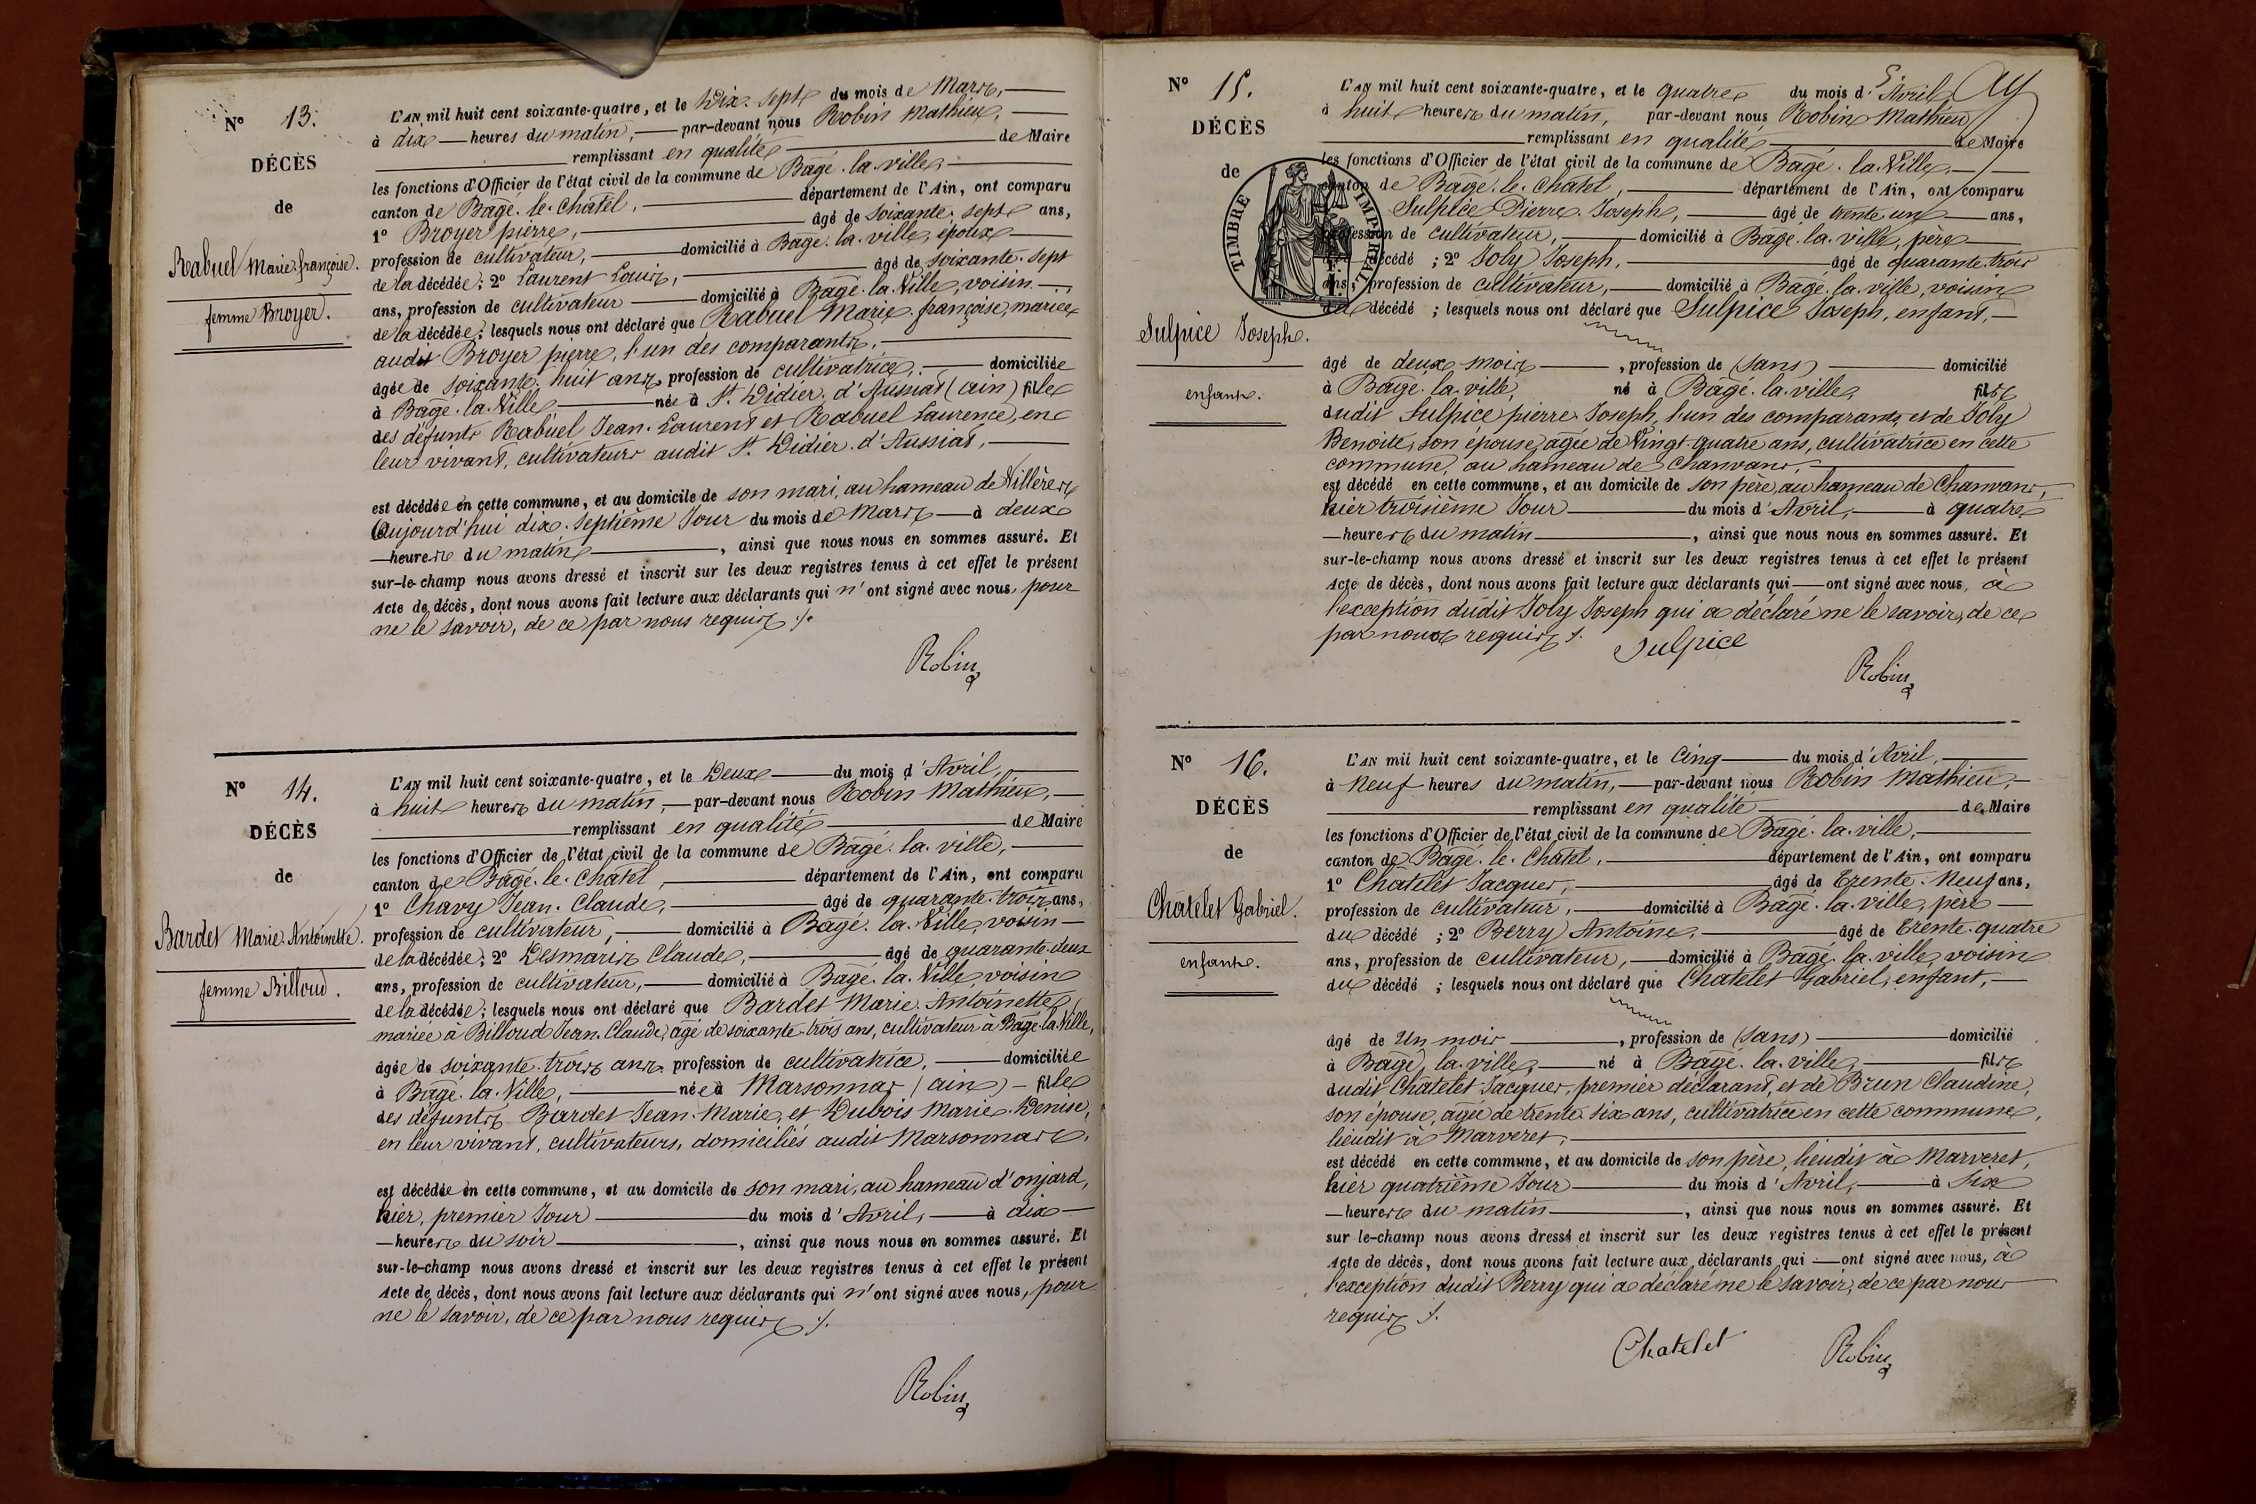 N° 13.
DÉCÈS
de
Rabuel Marie françoise.
femme Broyer.
L'AN mil huit cent soixante-quatre, et le Dix-sept du mois de Mars,
à dix heures du matin, par-devant nous Robin Mathieu,
remplissant en qualité de Maire
les fonctions d'Officier de l'état civil de la commune de Bâgé-la-ville,
canton de Bâgé-le-Châtel, département de l'Ain, ont comparu
1° Broyer pierre, âgé de soixante-sept ans,
profession de cultivateur, domicilié à Bâgé-la-ville, époux
de la décédée; 2° Laurent Louis, âgé de soixante-sept
ans, profession de cultivateur domicilié à Bâgé-la-Ville, voisin
de la décédée; lesquels nous ont déclaré que Rabuel Marie-françoise, mariée
audit Broyer pierre, l'un des comparants,
âgée de soixante-huit ans, profession de cultivatrice, domiciliée
à Bâgé-la-Ville née à St. Didier-d'Aussiat (ain) fille
des défunts Rabuel Jean-Laurent et Rabuel Laurence, en
leur vivant, cultivateurs audit St. Didier-d'Aussiat,
est décédée en cette commune, et au domicile de son mari, au hameau de Villères
Aujourd'hui dix-septième Jour du mois de Mars à deux
heures du matin, ainsi que nous nous en sommes assuré. Et
sur-le-champ nous avons dressé et inscrit sur les deux registres tenus à cet effet le présent
Acte de décès, dont nous avons fait lecture aux déclarants qui n'ont signé avec nous, pour
ne le savoir, de ce par nous requis ./.
Robin
N° 14.
DÉCÈS
de
Bardet Marie Antoinette.
femme Billoud.
L'AN mil huit cent soixante-quatre, et le Deux du mois d'Avril,
à huit heures du matin, par-devant nous Robin Mathieu,
remplissant en qualité de Maire
les fonctions d'Officier de l'état civil de la commune de Bâgé-la-ville,
canton de Bâgé-le-Châtel, département de l'Ain, ont comparu
1° Chavy Jean-Claude, âgé de quarante-trois ans,
profession de cultivateur, domicilié à Bâgé-la-Ville, voisin
de la décédée; 2° Desmaris Claude, âgé de quarante-deux
ans, profession de cultivateur, domicilié à Bâgé-la-Ville, voisin
de la décédée; lesquels nous ont déclaré que Bardet Marie-Antoinette,
mariée à Billoud Jean-Claude, âgé de soixante-trois ans, cultivateur à Bâgé-la-Ville,
âgée de soixante-trois ans, profession de cultivatrice, domiciliée
à Bâgé-la-Ville, née à Marsonnas (ain) fille
des défunts Bardet Jean-Marie, et Dubois Marie-Denise,
en leur vivant, cultivateurs, domiciliés audit Marsonnas,
est décédée en cette commune, et au domicile de son mari, au hameau d'onjard,
hier, premier Jour du mois d'Avril, à dix
heures du soir, ainsi que nous nous en sommes assuré. Et
sur-le-champ nous avons dressé et inscrit sur les deux registres tenus à cet effet le présent
Acte de décès, dont nous avons fait lecture aux déclarants qui n'ont signé avec nous, pour
ne le savoir, de ce par nous requis ./.
Robin
N° 15.
DÉCÈS
de
TIMBRE IMPÉRIAL
Sulpice Joseph.
enfant.
L'AN mil huit cent soixante-quatre, et le quatre du mois d'Avril
à huit heures du matin, par-devant nous Robin Mathieu
remplissant en qualité de Maire
les fonctions d'Officier de l'état civil de la commune de Bâgé-la-Ville,
canton de Bâgé-le-Châtel, département de l'Ain, ont comparu
Sulpice Pierre-Joseph, âgé de trente-un ans,
profession de cultivateur, domicilié à Bâgé-la-ville, père
décédé; 2° Joly Joseph, âgé de quarante-trois
ans, profession de cultivateur, domicilié à Bâgé-la-ville, voisin
du décédé; lesquels nous ont déclaré que Sulpice Joseph, enfant,
âgé de deux mois, profession de (sans) domicilié
à Bâgé-la-ville, né à Bâgé-la-ville, fils
dudit Sulpice pierre-Joseph, l'un des comparants, et de Joly
Benoite, son épouse, âgée de Vingt-quatre ans, cultivatrice en cette
commune, au hameau de Chanvans,
est décédé en cette commune, et au domicile de son père, au hameau de Chanvans,
hier troisième Jour du mois d'Avril, à quatre
heures du matin, ainsi que nous nous en sommes assuré. Et
sur-le-champ nous avons dressé et inscrit sur les deux registres tenus à cet effet le présent
Acte de décès, dont nous avons fait lecture aux déclarants qui ont signé avec nous, à
l'exception dudit Joly Joseph qui a déclaré ne le savoir, de ce
par nous requis ./.
Sulpice
Robin
N° 16.
DÉCÈS
de
Châtelet Gabriel.
enfant.
L'AN mil huit cent soixante-quatre, et le Cinq du mois d'Avril,
à Neuf heures du matin, par-devant nous Robin Mathieu,
remplissant en qualité de Maire
les fonctions d'Officier de l'état civil de la commune de Bâgé-la-ville,
canton de Bâgé-le-Châtel, département de l'Ain, ont comparu
1° Châtelet Jacques, âgé de Trente-Neuf ans,
profession de cultivateur, domicilié à Bâgé-la-ville, père
du décédé; 2° Berry Antoine, âgé de Trente-quatre
ans, profession de cultivateur, domicilié à Bâgé-la-ville, voisin
du décédé; lesquels nous ont déclaré que Chatelet Gabriel, enfant,
âgé de Un mois, profession de (sans) domicilié
à Bâgé-la-ville, né à Bâgé-la-ville, fils
dudit Chatelet Jacques, premier déclarant, et de Brun Claudine,
son épouse, âgée de trente-six ans, cultivatrice en cette commune,
lieudit à Marveret,
est décédé en cette commune, et au domicile de son père, lieudit à Marveret,
hier quatrième Jour du mois d'Avril, à Six
heures du matin, ainsi que nous nous en sommes assuré. Et
sur-le-champ nous avons dressé et inscrit sur les deux registres tenus à cet effet le présent
Acte de décès, dont nous avons fait lecture aux déclarants qui ont signé avec nous, à
l'exception dudit Berry qui a déclaré ne le savoir, de ce par nous
requis ./.
Chatelet
Robin